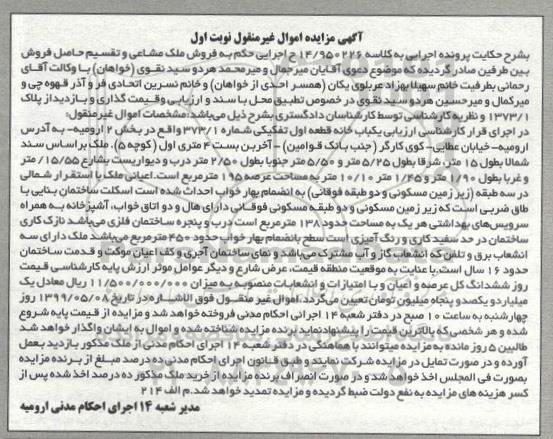 آگهی مزایده اموال غیرمنقول نوبت اول
بشرح حکایت پرونده اجرایی به کلاسه ۱۴/۹۵۰۲۲۶ ج اجرایی حکم به فروش ملک مشاعی و تقسیم حاصل فروش
بین طرفین صادر گردیده که موضوع دعوی آقایان میرجمال و میرمحمد هردو سید نقوی (خواهان) با وکالت آقای
رحمانی بطرفیت خانم سهیلا بهزاد عربلوی یکان (همسر احدی از خواهان) و خانم نسرین اتحادی فر و آذر قهوه چی و
میرکمال و میرحسین هردو سید نقوی در خصوص تطبیق محل با سند و ارزیابی وقیمت گذاری و بازدید از پلاک
۱۳۷۳/۱ و نظریه کارشناسی توسط کارشناسان دادگستری بشرح ذیل می‌باشد: مشخصات اموال غیرمنقول:
در اجرای قرار کارشناسی ارزیابی یکباب خانه قطعه اول تفکیکی شماره ۳۷۳/۱ واقع در بخش ۲ ارومیه- به آدرس
ارومیه- خیابان عطایی- کوی کارگر (جنب بانک قوامین) - آخرین بست ۴ متری اول (کوچه ۵). ملک بر اساس سند
شمالا بطول ۱۵ متر، شرقا بطول ۵/۲۵ متر و ۵/۵۰ متر جنوبا بطول ۲/۵۰ متر درب و دیواریست بشارع ۱۵/۵۵ متر
و غربا بطول ۱/۹۰ متر و ۱/۴۵ متر ۱۰/۱۰ متر به مساحت عرصه ۱۹۵ مترمربع است. اعیانی ملک با استقرار شمالی
در سه طبقه (زیر زمین مسکونی و دو طبقه فوقانی) به انضمام بهار خواب احداث شده است اسکلت ساختمان بنایی با
طاق ضربی است که زیر زمین مسکونی و دو طبقه مسکونی فوقانی دارای هال و دو اتاق خواب، آشپزخانه به همراه
سرویس‌های بهداشتی هر یک به مساحت حدود ۱۳۸ مترمربع است درب و پنجره ساختمان فلزی می‌باشد نازک کاری
ساختمان در حد سفید کاری و رنگ آمیزی است سطح بانضمام بهار خواب حدود ۴۵۰ مترمربع می‌باشد ملک دارای سه
انشعاب برق و تلفن که انشعاب گاز و آب مشترک می‌باشد و نمای ساختمان آجری و کف اعیان موکت و قدمت ساختمان
حدود ۱۶ سال است. با عنایت به موقعیت منطقه قیمت، عرض شارع و دیگر عوامل موثر ارزش پایه کارشناسی قیمت
روز ششدانگ کل عرصه و اعیان و با امتیازات و انشعابات منصوبه به میزان ۱۱/۵۰۰/۰۰۰/۰۰۰ ریال معادل یک
میلیارد و یکصد و پنجاه میلیون تومان تعیین می‌گردد. اموال غیر منقول فوق الاشاره در تاریخ ۱۳۹۹/۰۵/۰۸ روز
چهارشنبه به ساعت ۱۰ صبح در دفتر شعبه ۱۴ اجرائی احکام مدنی فروخته خواهد شد و مزایده از قیمت پایه شروع
شده و هر شخصی که بالاترین قیمت را پیشنهاد نماید برنده مزایده شناخته شده و اموال به ایشان واگذار خواهد شد
طالبین ۵ روز مانده به مزایده میتوانند با هماهنگی در دفتر شعبه ۱۴ اجرای احکام مدنی از ملک مذکور بازدید بعمل
آورده و در صورت تمایل در مزایده شرکت نمایند و طبق قانون اجرای احکام مدنی ده درصد مبلغ از برنده مزایده
بصورت فی المجلس اخذ خواهد شد و در صورت انصراف برنده مزایده از خرید ملک مذکور ده درصد اخذ شده پس از
کسر هزینه های مزایده به نفع دولت ضبط گردیده و مزایده تمدید خواهد شد. م الف ۲۱۴
مدیر شعبه ۱۴ اجرای احکام مدنی ارومیه